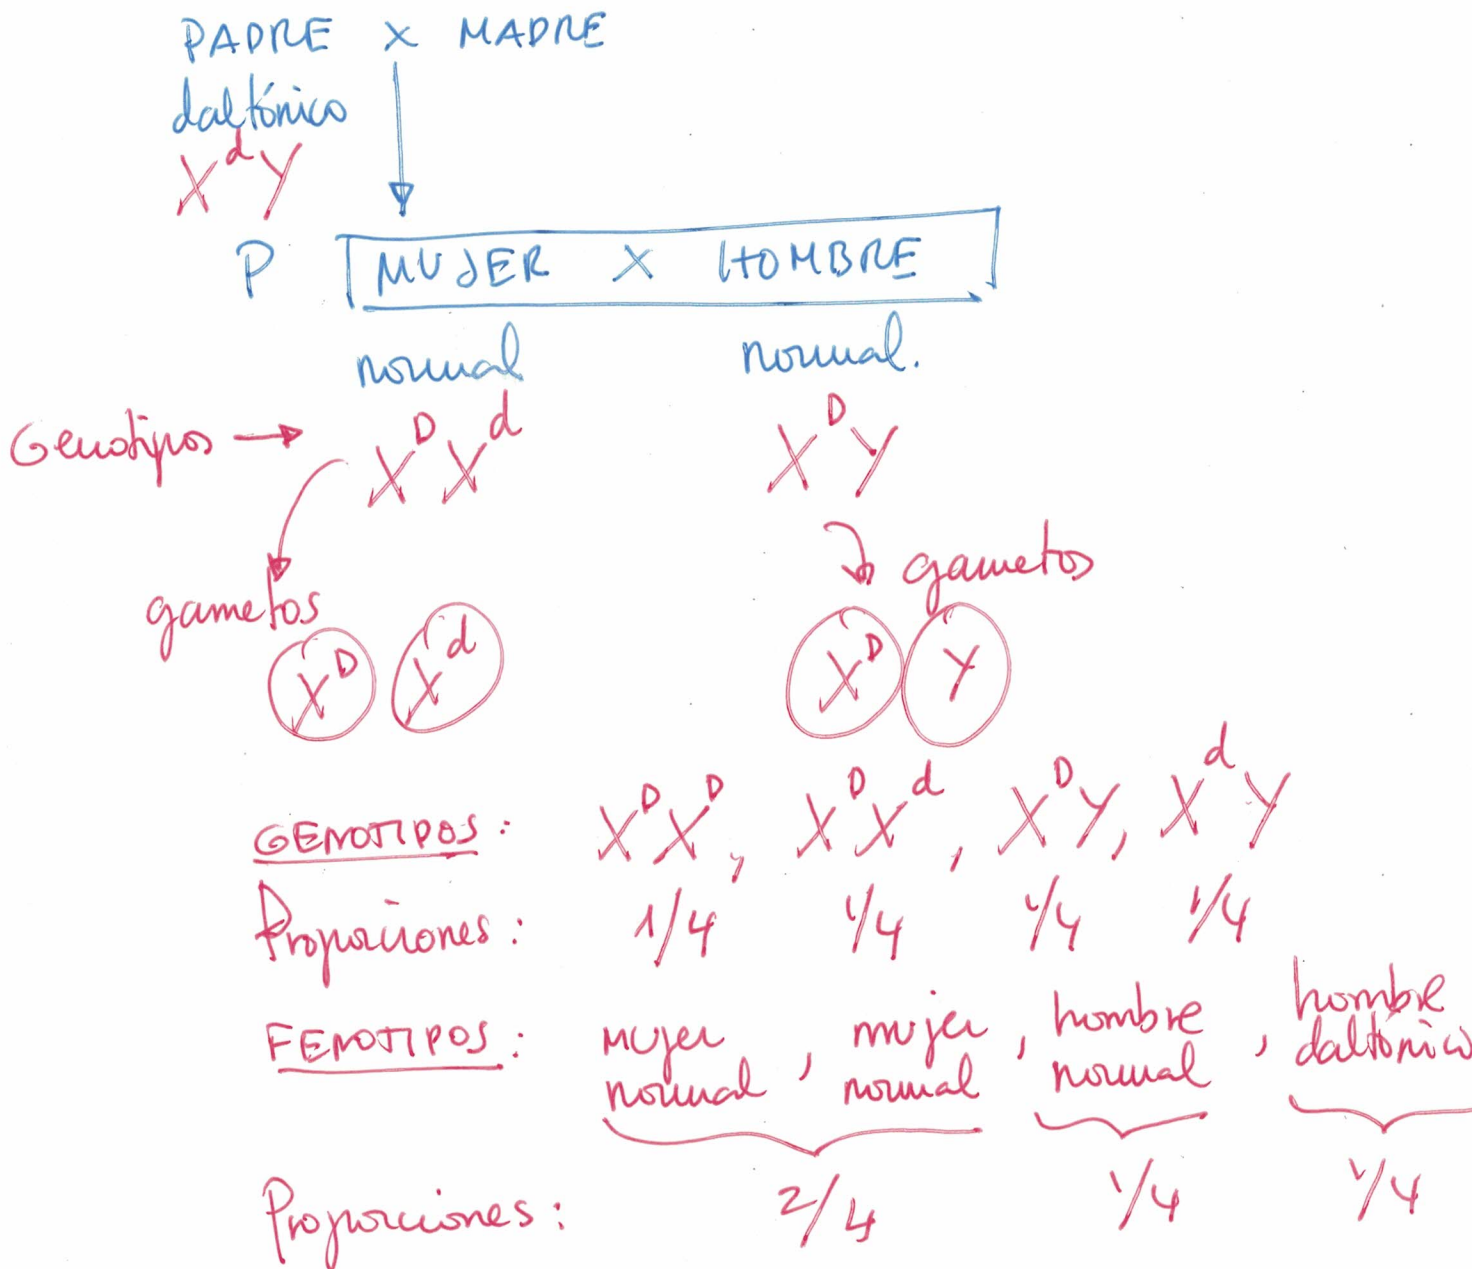 PADRE x MADRE
daltónico
XᵈY
P MUJER X HOMBRE
normal normal.
Genotipos → XᴰXᵈ XᴰY
gametos
gametos
Xᴰ Xᵈ Xᴰ Y
GENOTIPOS: XᴰXᴰ, XᴰXᵈ, XᴰY, XᵈY
Proporciones: 1/4 1/4 1/4 1/4
FENOTIPOS: mujer normal, mujer normal, hombre normal, hombre daltónico
Proporciones: 2/4 1/4 1/4